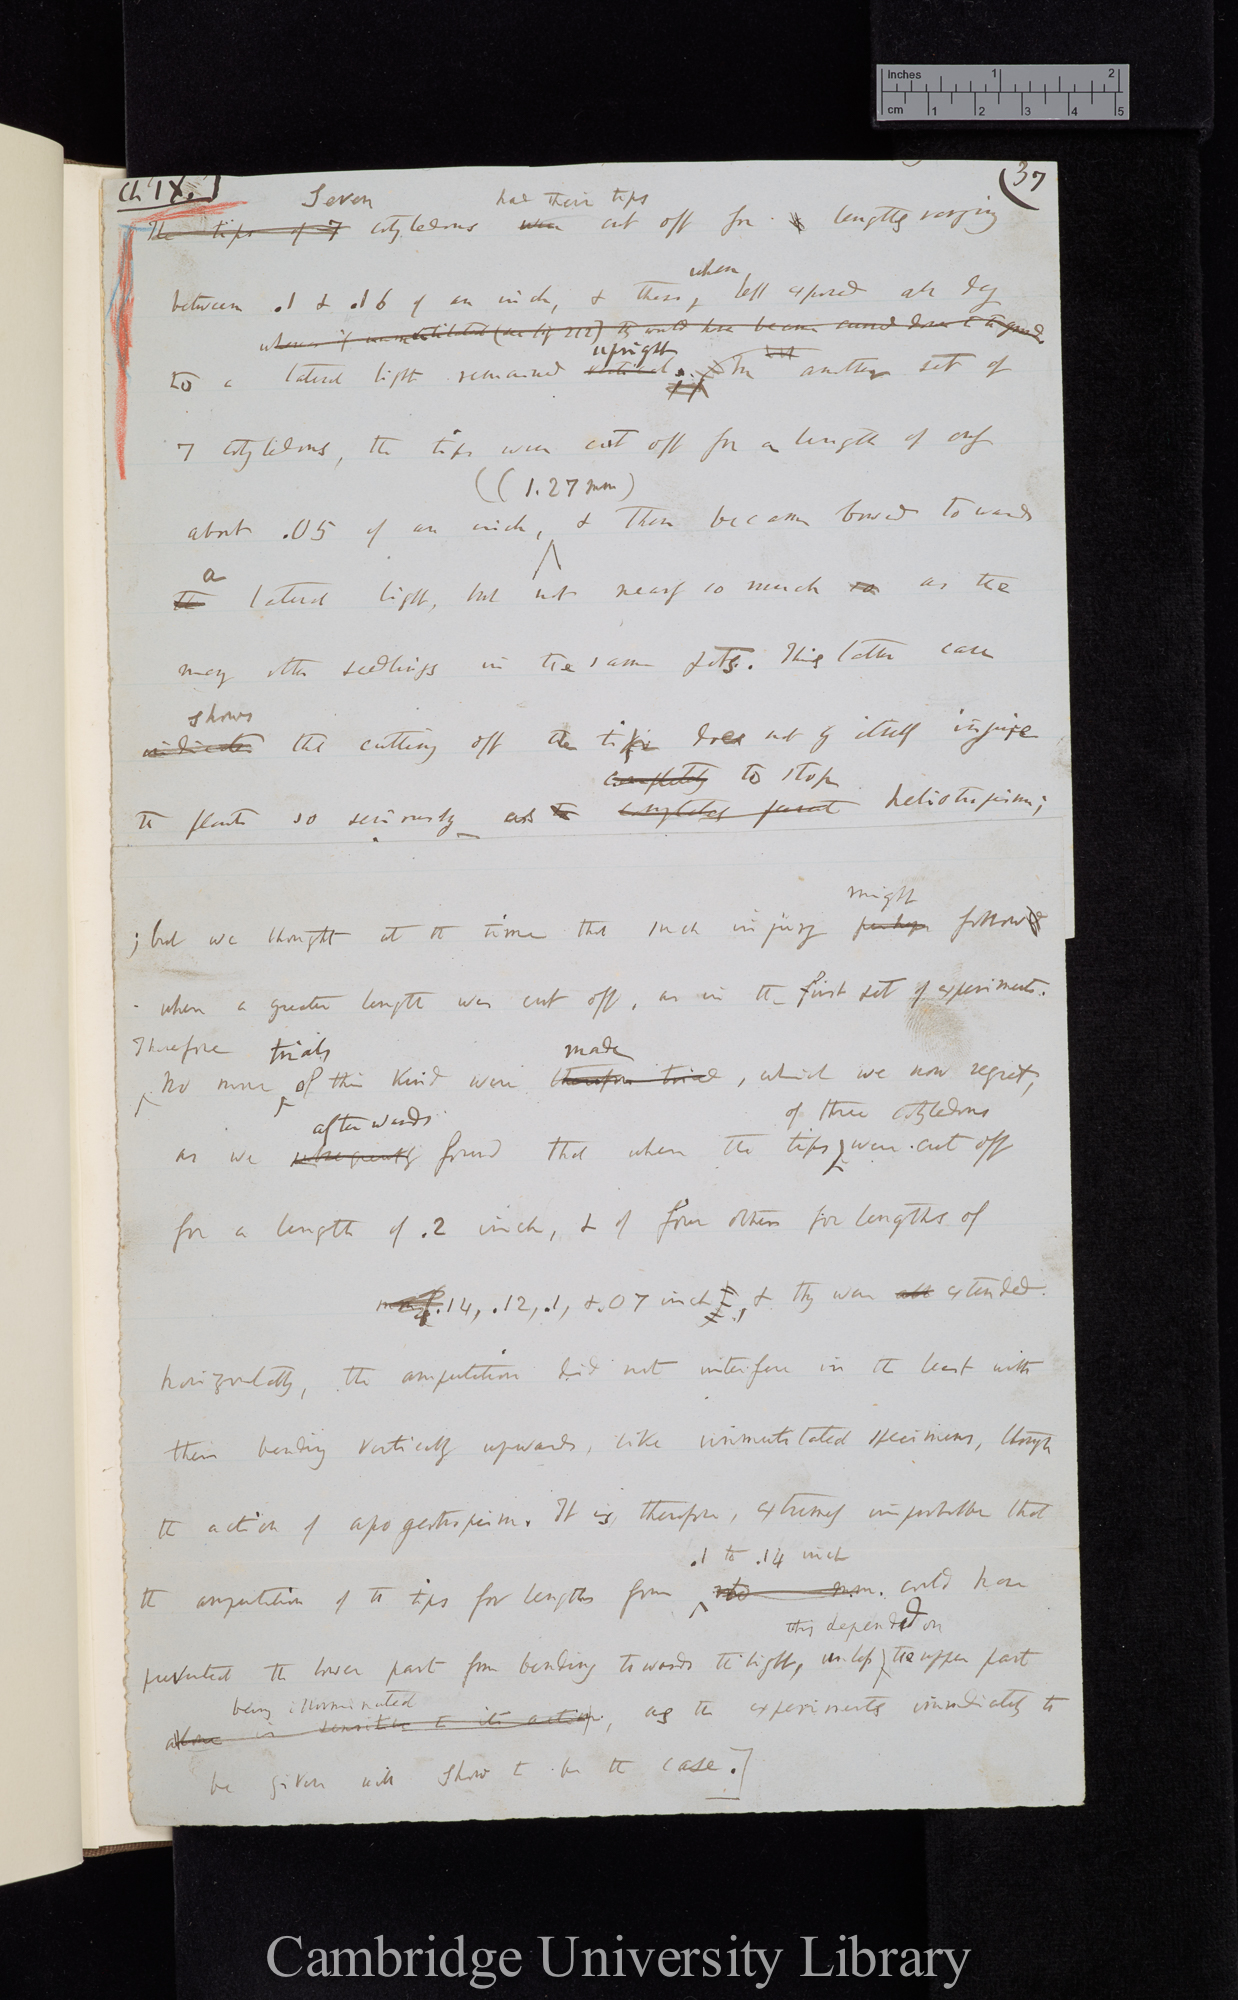 Inches 1 2
cm 1 2 3 4 5
Ch. IX.
(37
Seven had their tips
The tips of 7 cotyledons were cut off for lengths varying
when
between .1 & .16 of an inch, & these, left exposed all day
whereas if unmutilated (see fig 212) they would have become curved down to the ground
upright but
to a lateral light remained vertical. In another set of
7 cotyledons, the tips were cut off for a length of only
((1.27 mm)
about .05 of an inch, & these became bowed towards
a
the lateral light, but not nearly so much so as the
many other seedlings in the same pots. This latter case
shows
indicates that cutting off the tips does not by itself injure
completely to stop
the plants so seriously as to completely prevent heliotropism;
might
; but we thought at the time that such injury perhaps follow
when a greater length was cut off, as in the first set of experiments.
Therefore trials made
No more of this kind were therefore tried, which we now regret,
afterwards of three cotyledons
as we subsequently found that when the tips were cut off
for a length of .2 inch, & of four others for lengths of
.14, .12, .1, & .07 inch, & they were all extended
horizontally, the amputation did not interfere in the least with
their bending vertically upwards, like unmutilated specimens, through
the action of apogeotropism. It is, therefore, extremely improbable that
.1 to .14 inch
the amputation of the tips for lengths from mm. could have
this depended on
prevented the lower part from bending towards the light, unless the upper part
being illuminated
alone is sensitive to its action, as the experiments immediately to
be given will show to be the case.]
Cambridge University Library